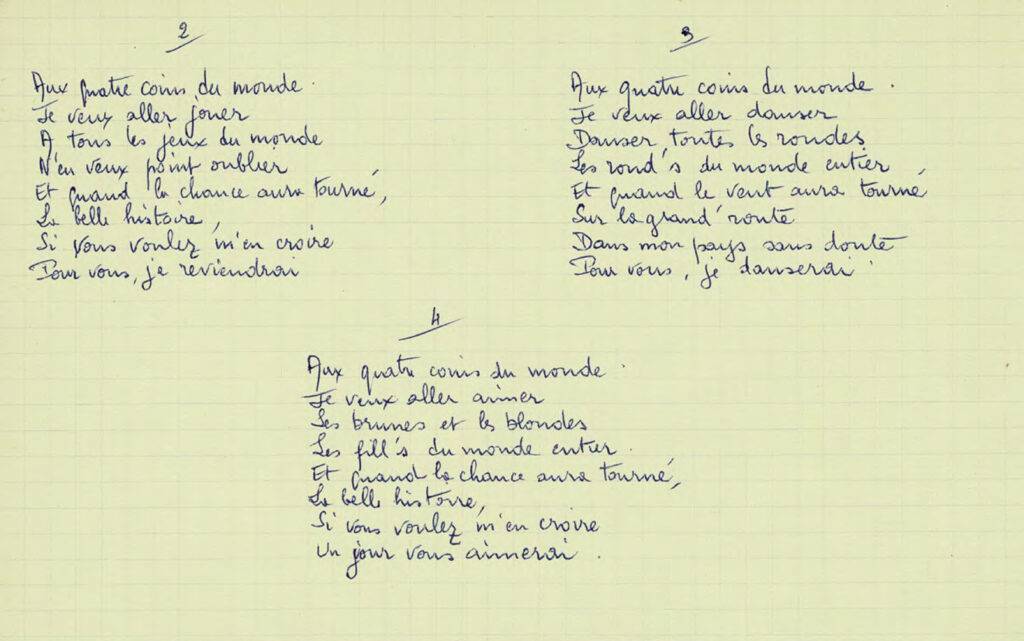 2
Aux quatre coins du monde.
Je veux aller jouer
A tous les jeux du monde
N'en veux point oublier
Et quand la chance aura tourné,
La belle histoire,
Si vous voulez m'en croire
Pour vous, je reviendrai
3
Aux quatre coins du monde.
Je veux aller danser
Danser, toutes les rondes
Les rond's du monde entier
Et quand le vent aura tourné
Sur la grand' route
Dans mon pays sans doute
Pour vous, je danserai.
4
Aux quatre coins du monde.
Je veux aller aimer
Les brunes et les blondes
Les fill's du monde entier.
Et quand la chance aura tourné,
La belle histoire,
Si vous voulez m'en croire
Un jour vous aimerai.